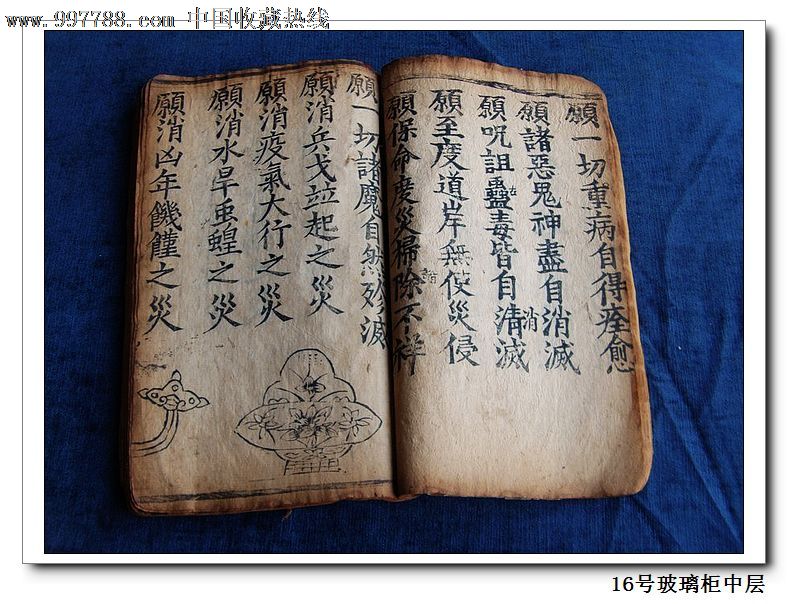 www.997788.com 中国收藏热线
願一切重病自得痊愈
願諸惡鬼神盡自消滅
願呪詛蠱毒皆自清滅
消
願至度道岸無使災侵
願保命度災掃除不祥
願一切諸魔自然殄滅
願消兵戈竝起之災
願消疫氣大行之災
願消水旱虫蝗之災
願消凶年饑饉之災
16号玻璃柜中层